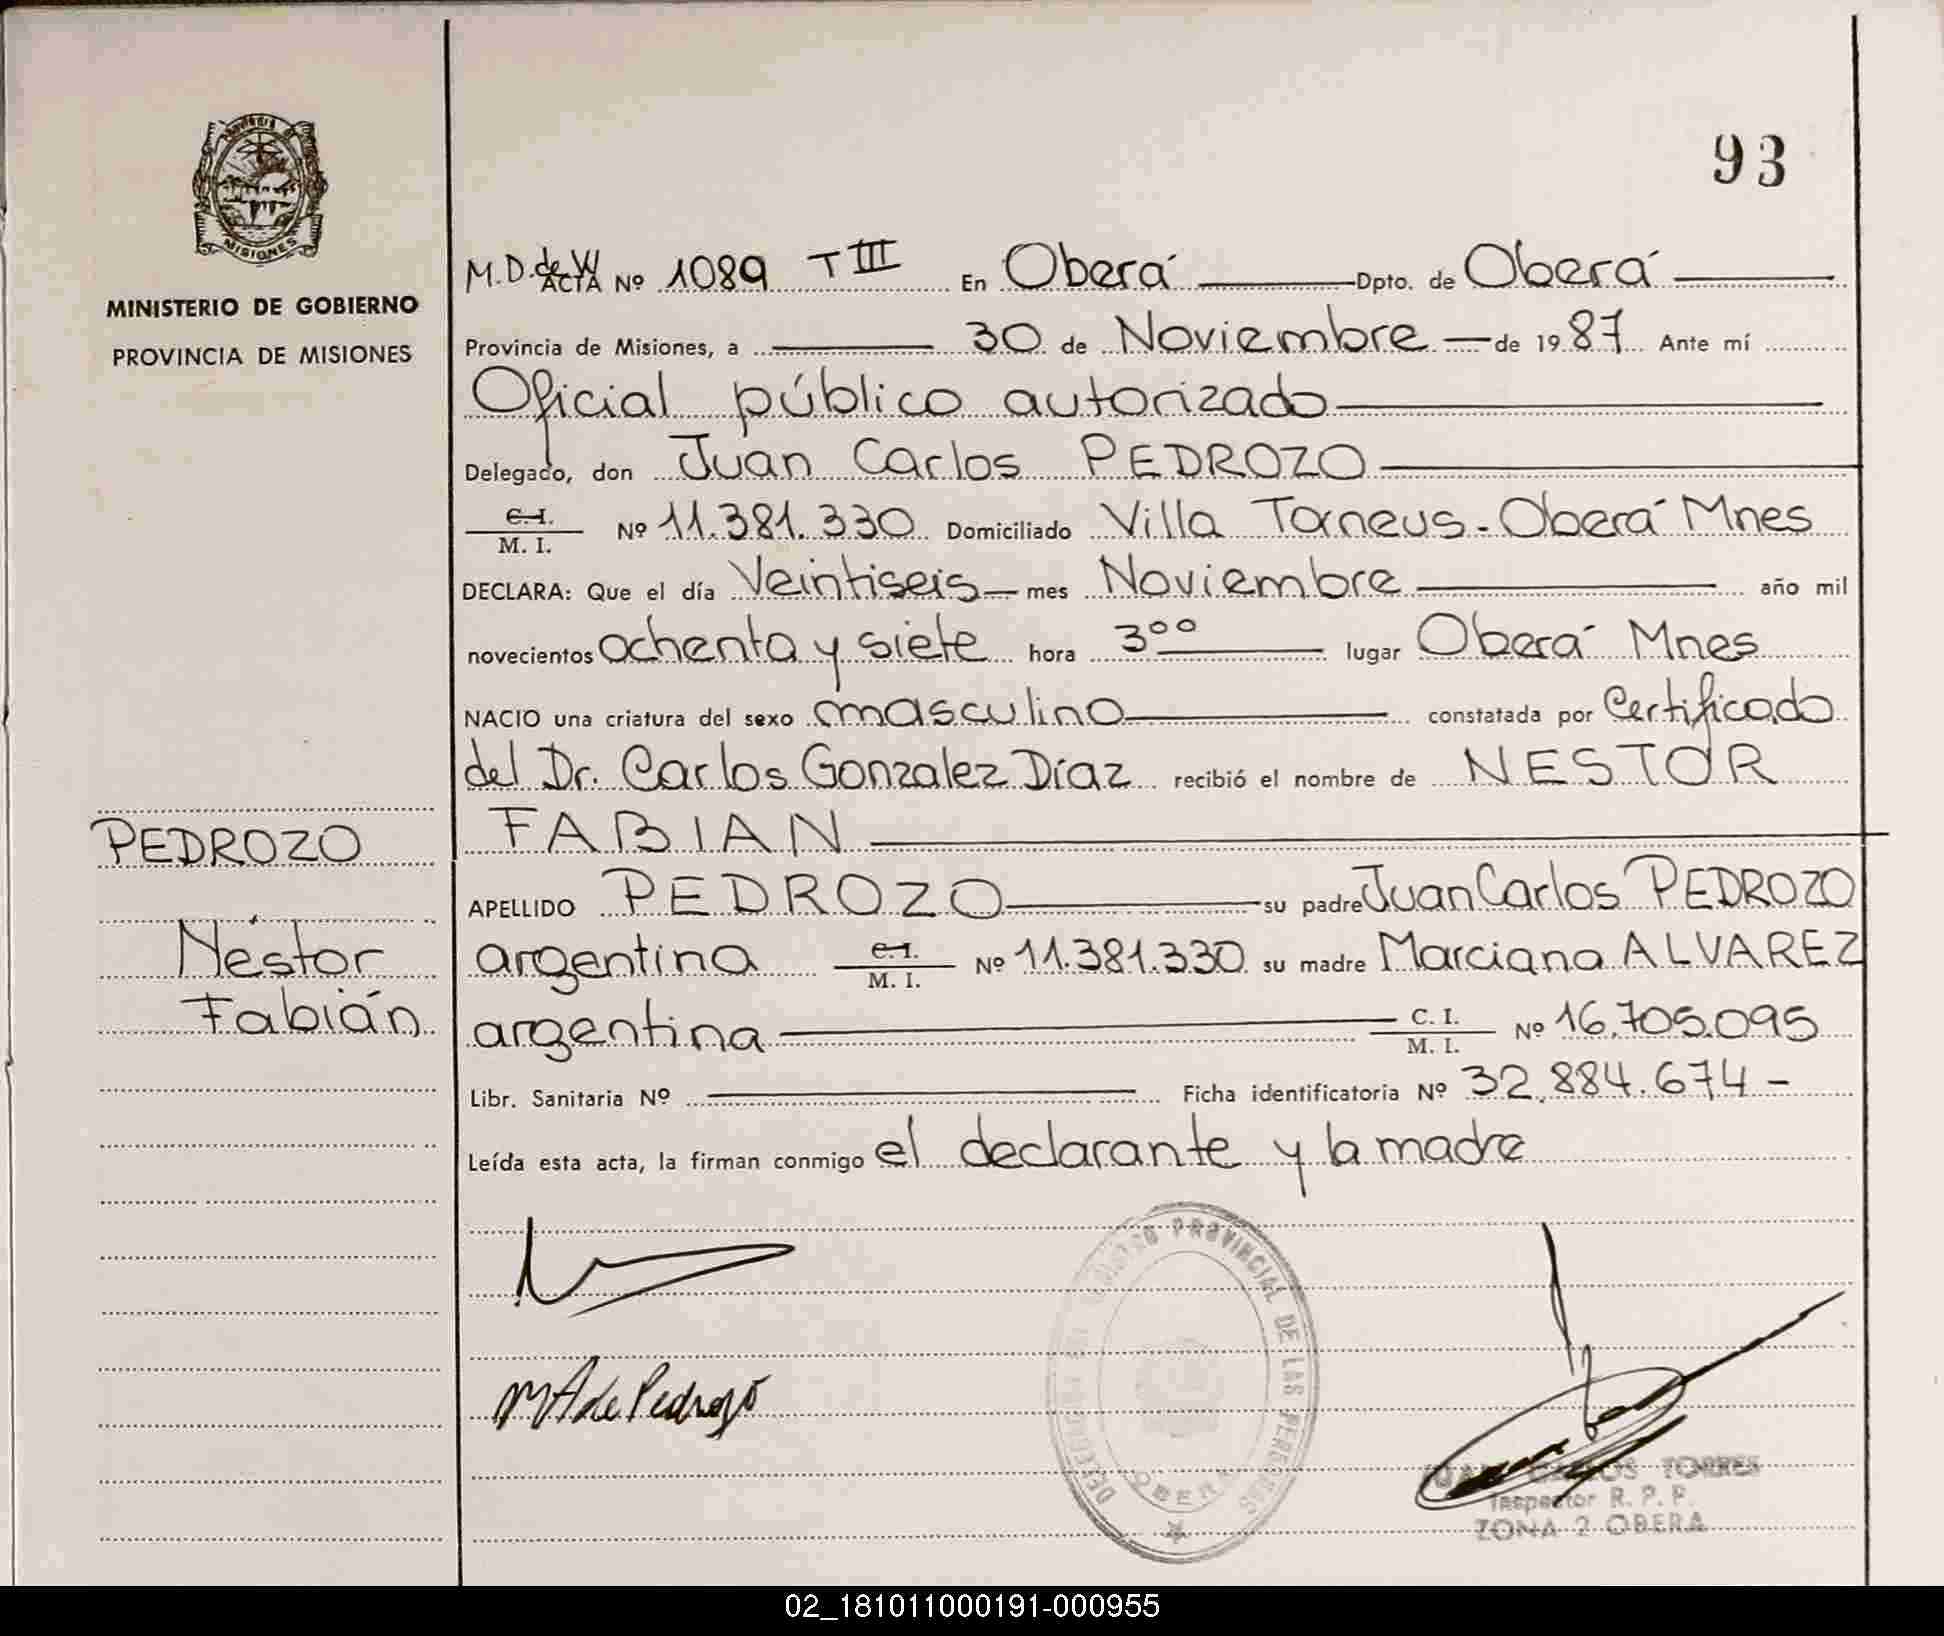 93
MISIONES
MINISTERIO DE GOBIERNO
PROVINCIA DE MISIONES
PEDROZO
Néstor
Fabián
M.D. de W ACTA Nº 1089 T III En Oberá Dpto. de Oberá
Provincia de Misiones, a 30 de Noviembre de 1987 Ante mí
Oficial público autorizado
Delegado, don Juan Carlos PEDROZO
C.I. M.I. Nº 11.381.330 Domiciliado Villa Torneus - Oberá Mnes
DECLARA: Que el día Veintiseis mes Noviembre año mil
novecientos ochenta y siete hora 3⁰⁰ lugar Oberá Mnes
NACIO una criatura del sexo masculino constatada por Certificado
del Dr. Carlos Gonzalez Díaz recibió el nombre de NESTOR
FABIAN
APELLIDO PEDROZO su padre Juan Carlos PEDROZO
argentina C.I. M.I. Nº 11.381.330 su madre Marciana ALVAREZ
argentina C.I. M.I. Nº 16.705.095
Libr. Sanitaria Nº Ficha identificatoria Nº 32.884.674 -
Leída esta acta, la firman conmigo el declarante y la madre
MA de Pedrozo
PROVINCIAL DE LAS PERSONAS
OBERA
JUAN CARLOS TORRES
Inspector R. P. P.
ZONA 2 OBERA
02_181011000191-000955